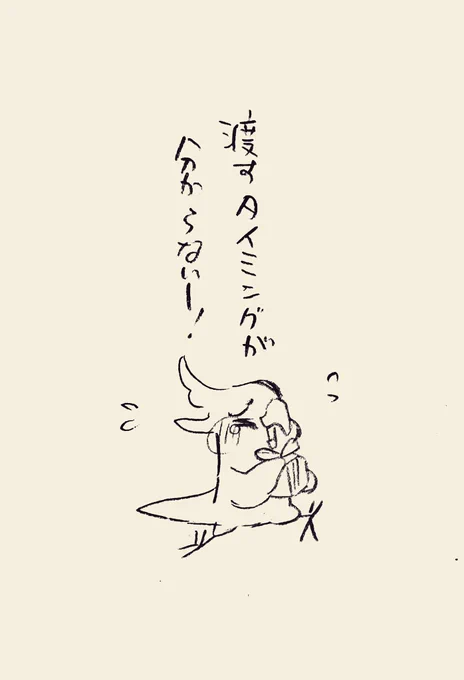 渡すタイミングが
分からないー！